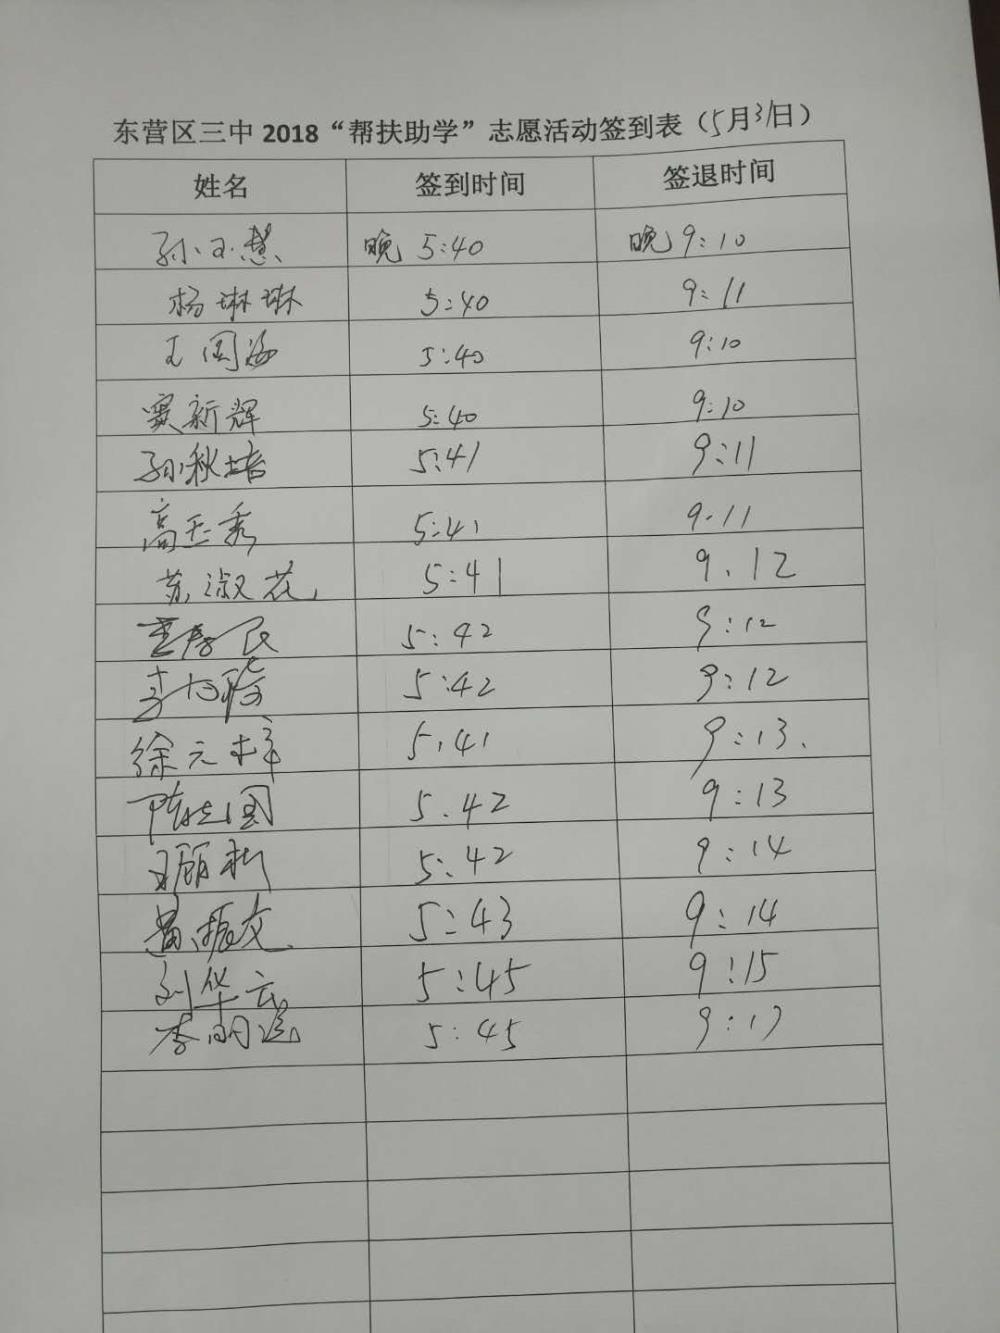 东营区三中 2018“帮扶助学”志愿活动签到表（5月31日）
姓名 签到时间 签退时间
孙玉慧 晚 5:40 晚 9:10
杨琳琳 5:40 9:11
王周海 5:40 9:10
窦新辉 5:40 9:10
孙秋培 5:41 9:11
高玉秀 5:41 9.11
苏淑花 5:41 9.12
5:42 9:12
5:42 9:12
徐元梓 5.41 9:13.
5.42 9:13
5:42 9:14
黄振友 5:43 9:14
刘华云 5:45 9:15
5:45 9:17